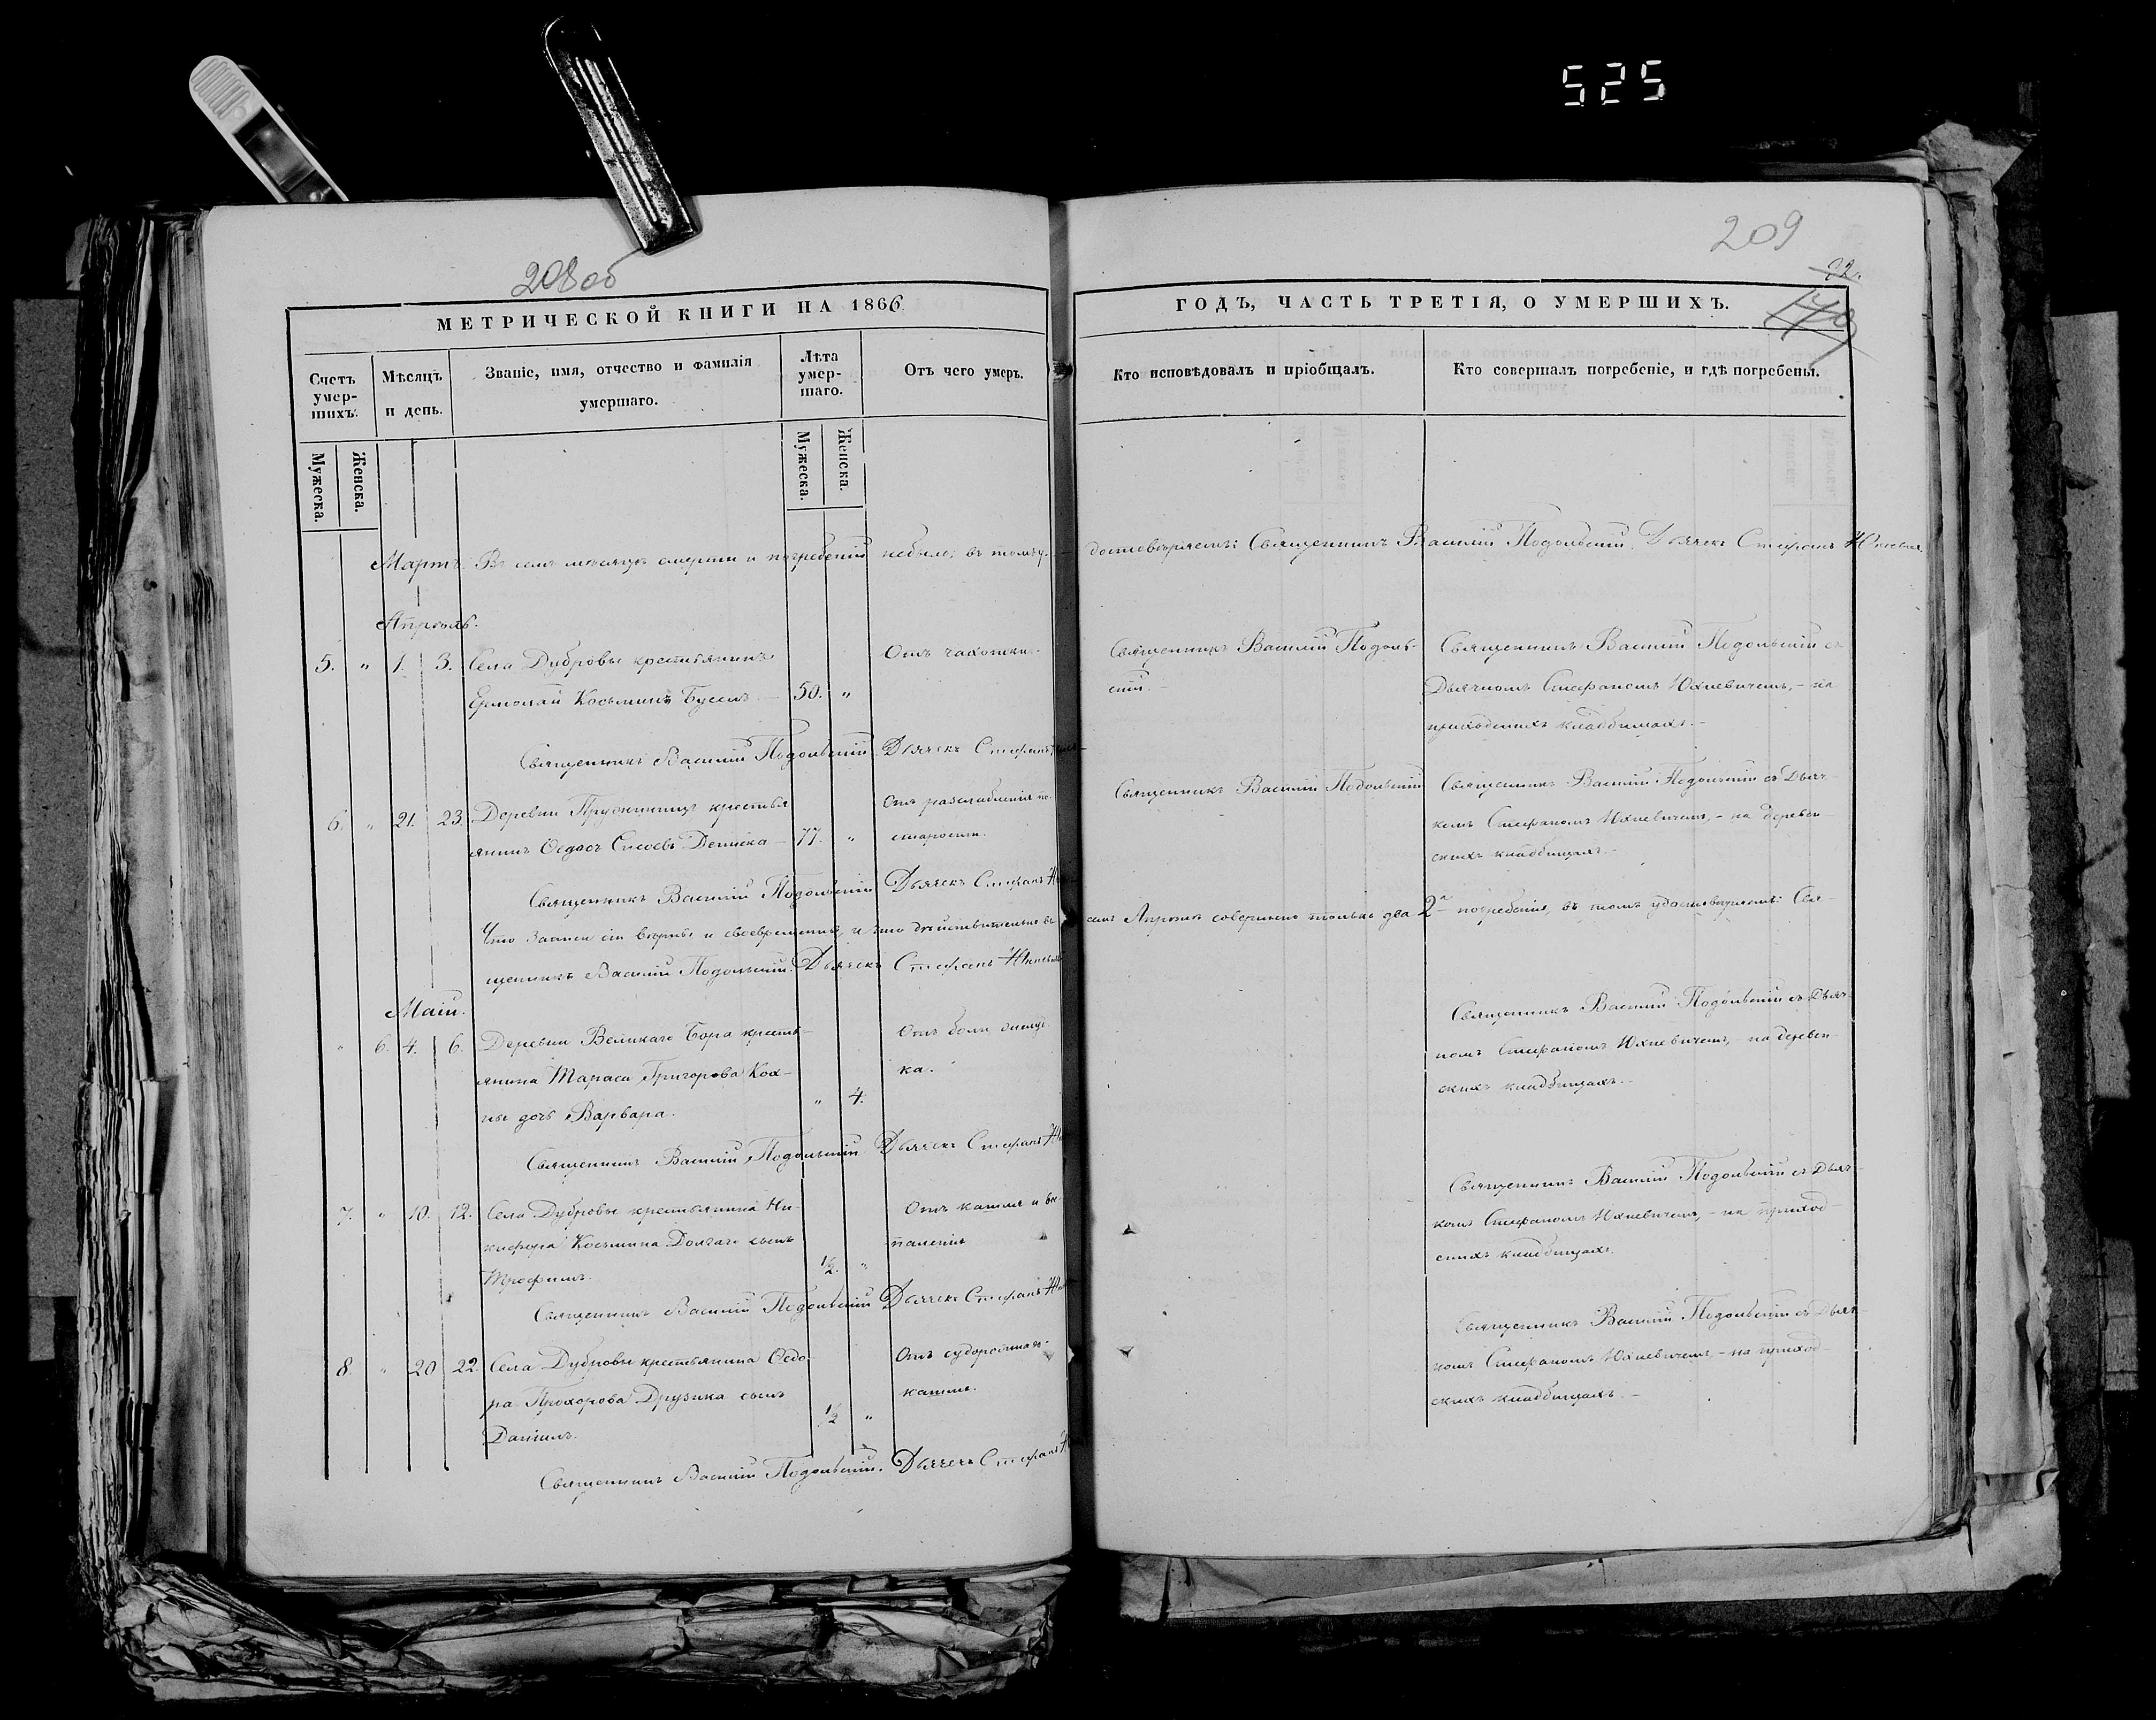 525
208об
209
92.
МЕТРИЧЕСКОЙ КНИГИ НА 1866
ГОДЪ, ЧАСТЬ ТРЕТІЯ, О УМЕРШИХЪ.
Счетъ умер-шихъ.
Мѣсяцъ и день.
Званіе, имя, отчество и фамилія умершаго.
Лѣта умер-шаго.
Отъ чего умеръ.
Кто исповѣдовалъ и пріобщалъ.
Кто совершалъ погребеніе, и гдѣ погребены.
Мужеска.
Женска.
Мужеска.
Женска.
Мартъ. Въ семъ мѣсяцѣ смерти и погребеній небыло; въ томъ у-
достовѣряемъ: Священникъ Василій Подольскій. Дьячекъ Стефанъ
Апрѣль.
5. " 1. 3. Села Дубровы крестьянинъ
Ермолай Косьминъ Буселъ. — 50. "
Отъ чахотки.
Священникъ Василій Подоль-
скій. —
Священникъ Василій Подольскій съ
Дьячкомъ Стефаномъ Юхневичемъ, – на
приходскихъ кладбищахъ. –
Священникъ Василій Подольскій. Дьячекъ Стефанъ
6. " 21. 23. Деревни Прудищицъ крестья
янинъ Ѳедосъ Сысоевъ — 77. "
Отъ разслабленія по
старости.
Священникъ Василій Подольскій
Священникъ Василій Подольскій съ Дьяч-
комъ Стефаномъ Юхневичемъ, – на деревен-
скихъ кладбищахъ. –
Священникъ Василій Подольскій Дьячекъ Стефанъ
Что записи сіи вѣрны и своевременны, и что дѣйствительно въ
семъ Апрѣлѣ совершено только два 2 погребенія, въ томъ удостовѣряемъ: Свя-
щенникъ Василій Подольскій. Дьячекъ Стефанъ
Маій.
" 6. 4. 6. Деревни Великаго Бора кресть-
янина Тараса Григорова Кох-
ны дочь Варвара. " 4.
Отъ боли
ка.
Священникъ Василій Подольскій съ Дьяч-
комъ Стефаномъ Юхневичемъ, – на деревен-
скихъ кладбищахъ. –
Священникъ Василій Подольскій Дьячекъ Стефанъ
7. " 10. 12. Села Дубровы крестьянина Ни-
кифора Косьмина Долгаго сынъ
Трофимъ. 1/2. "
Отъ кашля и вос-
паленія
Священникъ Василій Подольскій съ Дьяч-
комъ Стефаномъ Юхневичемъ, – на приход-
скихъ кладбищахъ.
Священникъ Василій Подольскій Дьячекъ Стефанъ
8. " 20 22. Села Дубровы крестьянина Ѳедо-
ра Прохорова Друзика сынъ
Даніилъ. 1/2 "
Отъ судорожнаго
кашля.
Священникъ Василій Подольскій съ Дьяч-
комъ Стефаномъ Юхневичемъ – на приход-
скихъ кладбищахъ. –
Священникъ Василій Подольскій. Дьячекъ Стефанъ